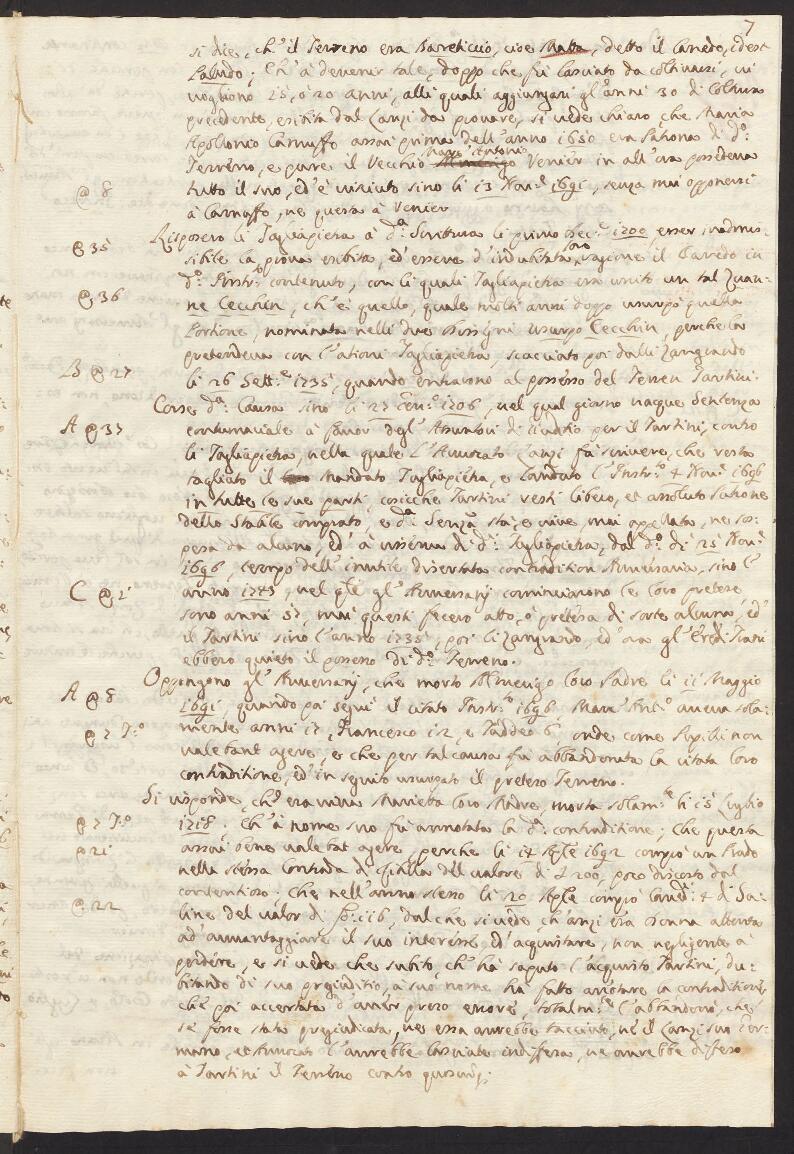 7
si dice, ch'il Terreno era Bareticcio, cioe Matta, detto il Caredo, idest
Paludo; Ch'à devenir tale, doppo che fù lasciato da coltivarsi, vi
vogliono 15, ò 20 anni, alli quali aggiungasi gl'anni 30 di Coltura
precedente, esibita dal Canzi da provare, si vede chiaro che Maria
Apollonio Carnuffo assai prima dell'anno 1650 era Patrona di d.º
Marc' Antonio
Terreno, e pure il Vecchio Venier in all'ora possedeva
@ 8 tutto il suo, ed'è vissuto sino li 13 Nov.e 1691, senza mai opponersi
à Carnuffo, ne questa à Venier
@ 35 Risposero li Tagliapietra à d.ª Scrittura li primo 1700, esser inadmis-
sibile la prova esibita, ed'essere d'indubitata loro ragione il Caredo in
@ 36 d.º Instr.º contenuto, con li quali Tagliapietra era unito un tal Zuan-
ne Cecchin, ch'è quello, quale molti anni doppo usurpò quella
Portione, nominata nelli due dissegni usurpo Cecchin, perche la
pretendeva con l'attioni Tagliapietra, scacciato poi dalli Zangrando
B @ 27 li 26 Sett.e 1735, quando entrarono al possesso del Terren Tartini.
Corse d.ª Causa sino li 27 1706, nel qual giorno naque Sentenza
A @ 37 contumaciale à favor degl'Assuntori di Giuditio per il Tartini, contro
li Tagliapietra, nella quale l'Avvocato Canzi fà scrivere, che resta
tagliato il Mandato Tagliapietra, e laudato l'Instr.º 4 Nov.e 1696
in tutte le sue parti, cosicche Tartini restò libero, et assoluto Patrone
dello Stabile comprato, e d.ª Senza stà, e vive, mai appellata, ne sos-
pesa da alcuno, ed' à d.i Tagliapietra, dal d.º di 25 Nov.e
1696, tempo dell'inutile disertata contradition Aversaria, sino l'
C @ 2 anno 1743, nel q.le gl'Aversarij cominciarono le loro pretese
sono anni 57, mai questi fecero atto, ò pretesa di sorte alcuna, ed'
il Tartini sino l'anno 1735, poi li Zangrando, ed'ora gl'Eredi
ebbero quieto il possesso di d.º Terreno.
Oppongono gl'Aversarij, che morto Almerigo loro Padre li 11 Maggio
A @ 8 1691, quando poi seguì il citato Instr.º 1696 Marc' Ant.º aveva sola-
mente anni 17, Francesco 12, e Taddeo 6, onde come Pupilli non
@ 7 T.º valebant agere, e che per tal causa fù abbandonata la citata loro
contraditione, ed'in seguito usurpato il preteso Terreno.
Si risponde, ch'era viva Marietta loro Madre, morta solam.e li 15 Luglio
@ 7 T.º 1718. Ch'à nome suo fù annotata la d.ª contraditione; Che questa
@ 21 assai bene valebat agere, perche li 14 Aple 1692 comprò un Prado
nella stessa Contrada di del valore di £ 200, poco discosto dal
contentioso; Che nell'anno stesso li 20 Aple comprò 4 di Sa-
@ 22 line del valor di 116, dal che si vede, ch'anzi era Donna attenta
ad'avvantaggiare il suo interesse, ed'acquistare, non negligente à
perdere, e si vede che subito, ch'hà saputo l'acquisto Tartini, du-
bitando di suo pregiuditio, à suo nome hà fatto annotare la contraditione,
che poi accertata d'aver preso errore, totalm.e l'abbandonò, che
se fosse stata pregiudicata, ne essa avrebbe tacciuto, ne il Canzi suo Ger-
mano, et Avvocato l'avrebbe lasciata indiffesa, ne avrebbe diffeso
à Tartini il Terreno contro